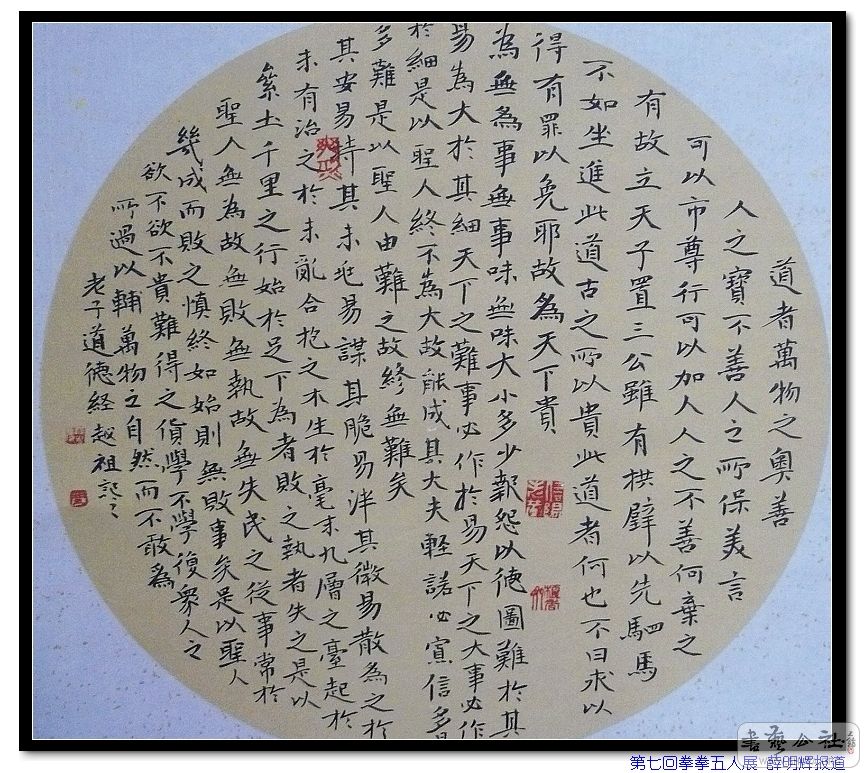 道者萬物之奧善
人之寶不善人之所保美言
可以市尊行可以加人人之不善何棄之
有故立天子置三公雖有栱璧以先駟馬
不如坐進此道古之所以貴此道者何也不曰求以
得有罪以免耶故為天下貴
為無為事無事味無味大小多少報怨以德圖難於其
易為大於其細天下之難事必作於易天下之大事必作
於細是以聖人終不為大故能成其大夫輕諾必寡信多
多難是以聖人由難之故終無難矣
其安易持其未兆易謀其脆易泮其微易散為之於
未有治之於未亂合抱之木生於毫末九層之臺起於
絫土千里之行始於足下為者敗之執者失之是以
聖人無為故無敗無執故無失民之從事常於
幾成而敗之慎終如始則無敗事矣是以聖人
欲不欲不貴難得之貨學不學復衆人之
所過以輔萬物之自然而不敢為
老子道德経
第七回拳拳五人展 薛明辉报道
書藝公社